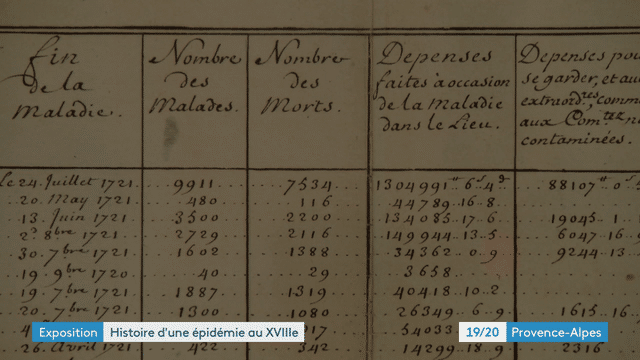 fin de la Maladie. Nombre des Malades. Nombre des Morts. Depenses faites à occasion de la Maladie dans le Lieu. Depenses pou se garder, et au extraord.res, comm aux Com.tez n contaminées.
le 24. Juillet 1721 9911 7534 1304991 tt 6 s 4 d 88107 tt 0
20. May 1721 480 116 44789. 16. 8.
13. Juin 1721 3500 2200 134085. 17. 6. 19045. 1
2. 8bre 1721 2729 2116 149944. 13. 5. 6047. 16
30. 7bre 1721 1602 1388 34362. 0. 9. 9244. 13
19. 9bre 1720 40 29 3658.
19. 7bre 1721 1887 1319 40418. 10. 2.
20. 7bre 1721 1300 1080 26349. 6. 9. 1615. 16
217 54033
26. Avril 1721 422 342 14299. 18. 9. 2316
Exposition Histoire d'une épidémie au XVIIIe 19/20 Provence-Alpes